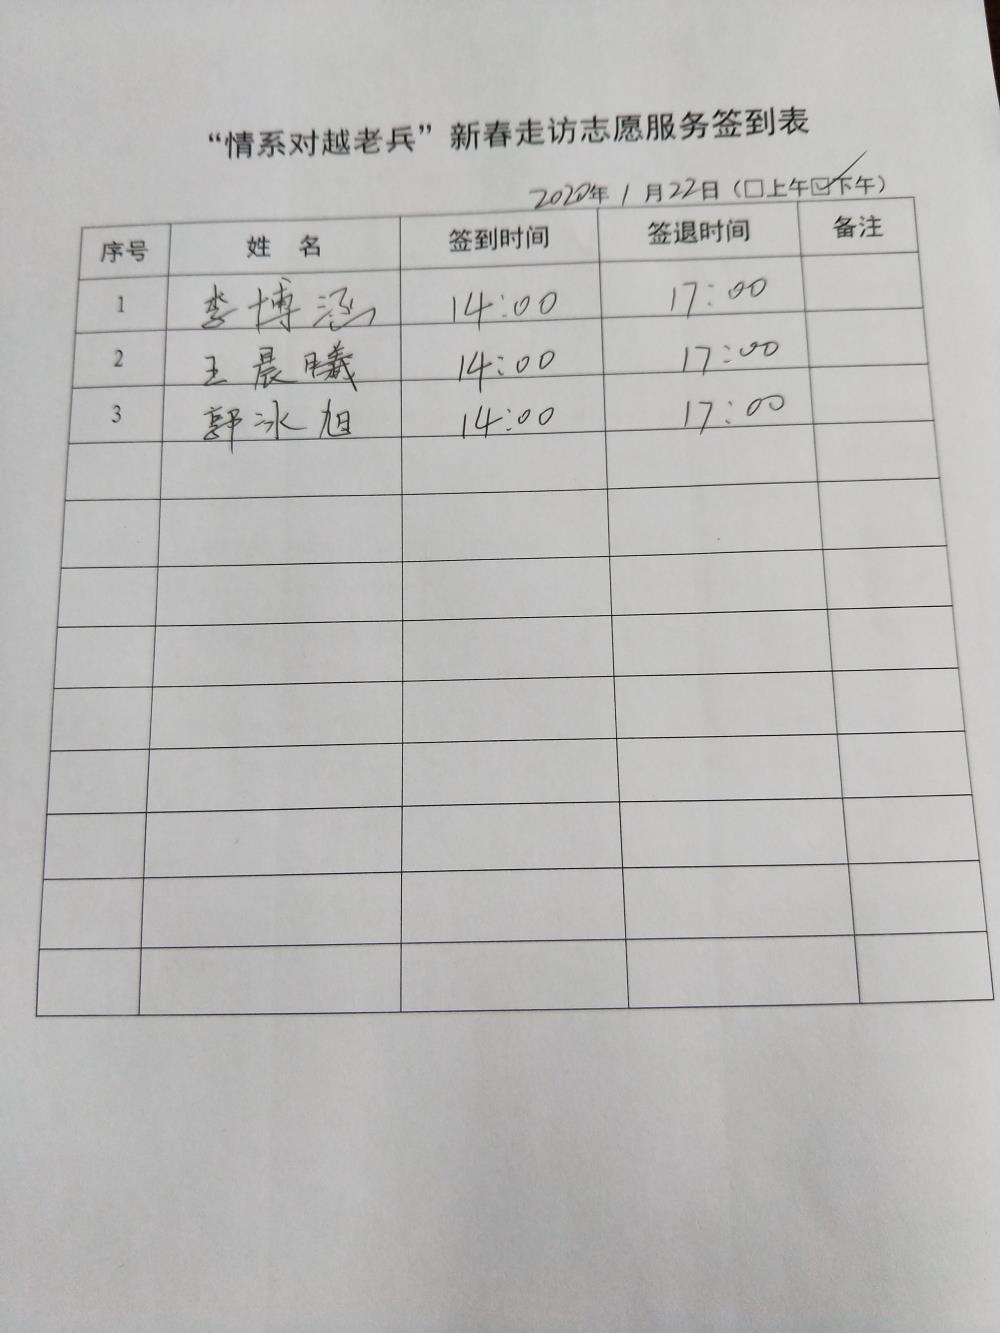 “情系对越老兵”新春走访志愿服务签到表
2020年1月22日（□上午☑下午）
序号 姓 名 签到时间 签退时间 备注
1 李博涵 14:00 17:00
2 王晨曦 14:00 17:00
3 郭冰旭 14:00 17:00